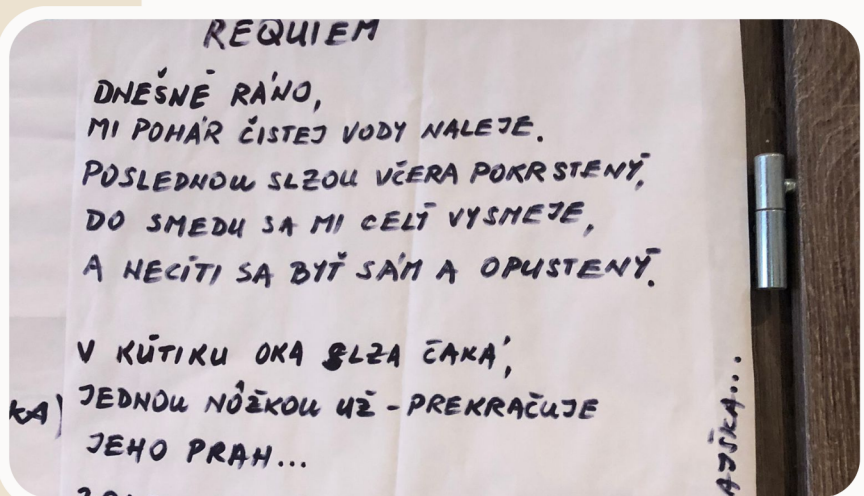 REQUIEM
DNEŠNÉ RÁNO,
MI POHÁR ČISTEJ VODY NALEJE.
POSLEDNOU SLZOU VČERA POKRSTENÝ,
DO SMEDU SA MI CELÝ VYSMEJE,
A NECÍTI SA BYŤ SÁM A OPUSTENÝ.
V KÚTIKU OKA SLZA ČAKÁ,
JEDNOU NÔŽKOU UŽ - PREKRAČUJE
JEHO PRAH...
KA)